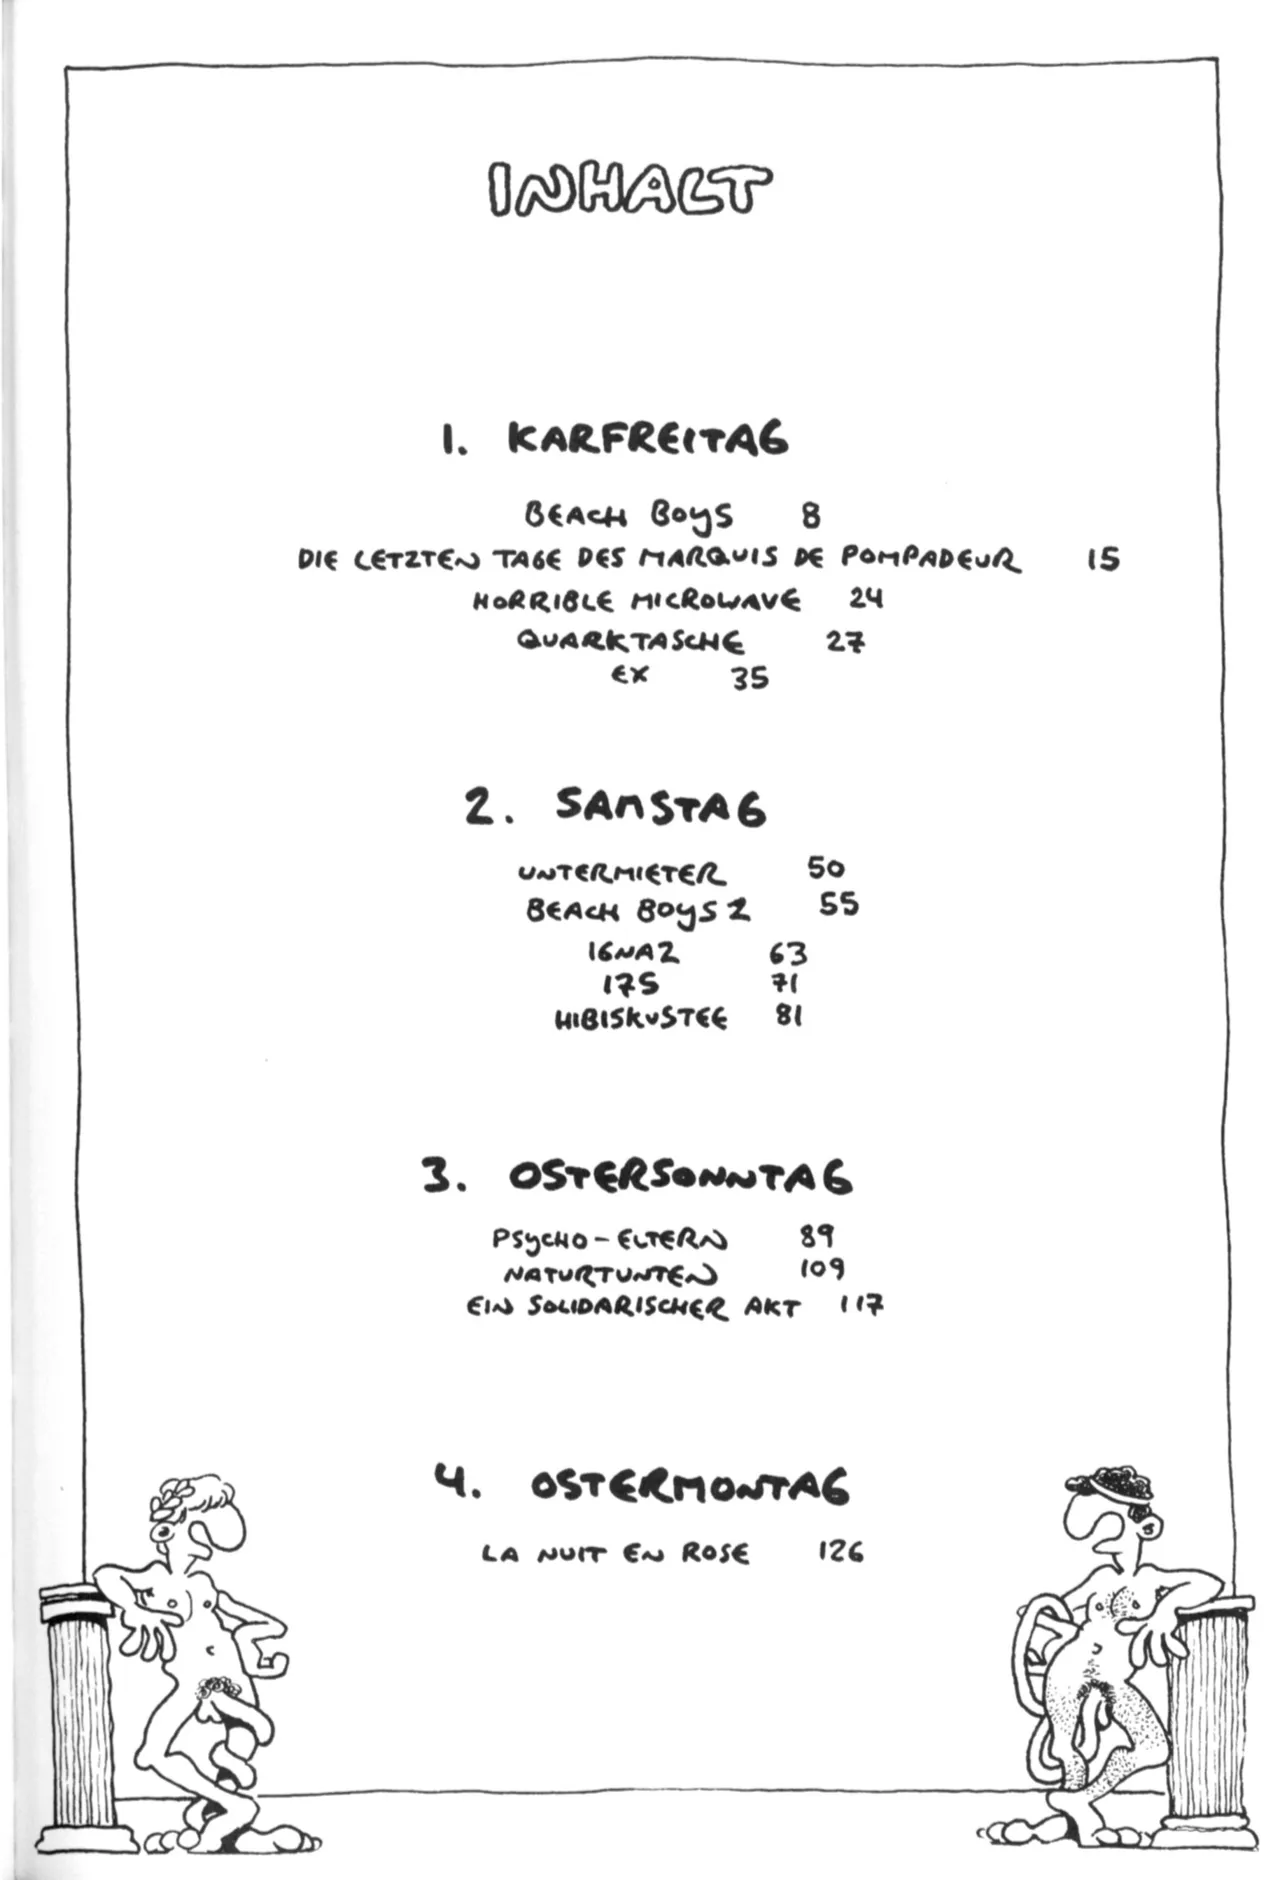 INHALT
1. KARFREITAG
BEACH BOYS 8
DIE LETZTEN TAGE DES MARQUIS DE POMPADEUR 15
HORRIBLE MICROWAVE 24
QUARKTASCHE 27
EX 35
2. SAMSTAG
UNTERMIETER 50
BEACH BOYS 2 55
IGNAZ 63
175 71
HIBISKUSTEE 81
3. OSTERSONNTAG
PSYCHO-ELTERN 89
NATURTUNTEN 109
EIN SOLIDARISCHER AKT 117
4. OSTERMONTAG
LA NUIT EN ROSE 126